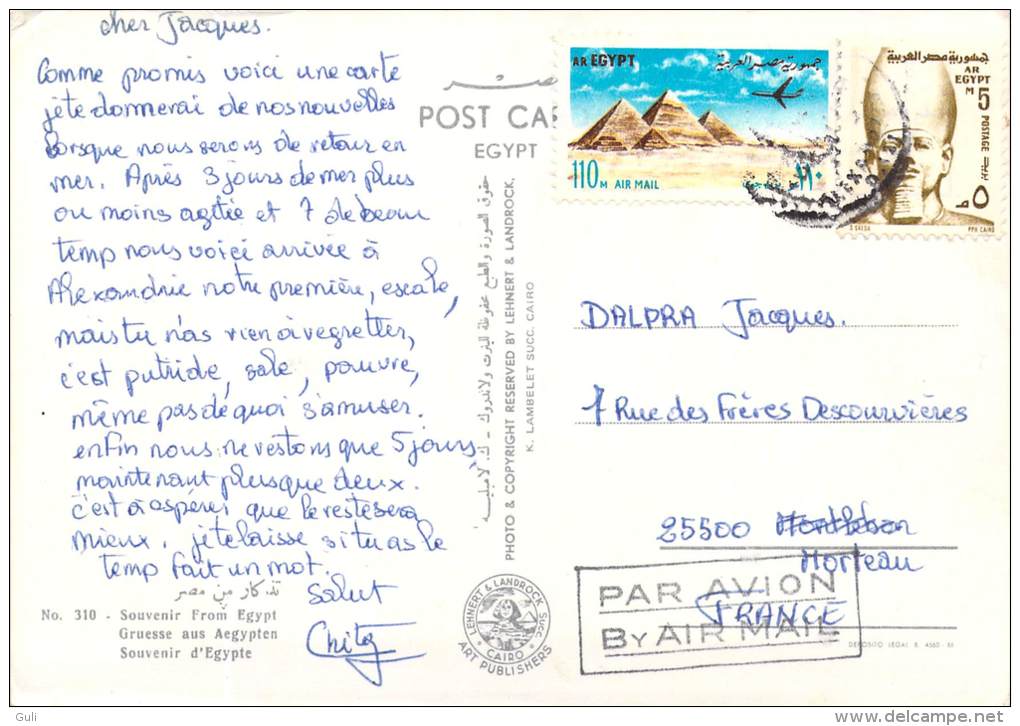 cher Jacques.
Comme promis voici une carte
je te donnerai de nos nouvelles
lorsque nous serons de retour en
mer. Après 3 jours de mer plus
ou moins agitée et 7 de beau
temp nous voici arrivée à
Alexandrie notre première, escale,
mais tu n'as rien à regretter,
c'est putride, sale, pauvre,
même pas de quoi s'amuser.
enfin nous ne restons que 5 jours
maintenant plus que deux.
c'est à aspérer que le reste sera
mieux. je te laisse si tu as le
temp fait un mot.
Salut
تذكار من مصر
No. 310 - Souvenir From Egypt
Gruesse aus Aegypten
Souvenir d'Egypte
مصر
POST CA
EGYPT
PHOTO & COPYRIGHT RESERVED BY LEHNERT & LANDROCK,
K. LAMBELET SUCC. CAIRO
LEHNERT & LANDROCK SUCC.
CAIRO
ART PUBLISHERS
AR EGYPT
جمهورية مصر العربية
110 M AIR MAIL
١١٠
جمهورية مصر العربية
AR
EGYPT
M 5
POSTAGE
٥
PPH. CAIRO
DALPRA Jacques.
7 Rue des Frères Descourvières
25500 Montlebon
Morteau
FRANCE
PAR AVION
BY AIR MAIL
DEPOSITO LEGAL B. 4560
Guli
www.delcampe.net